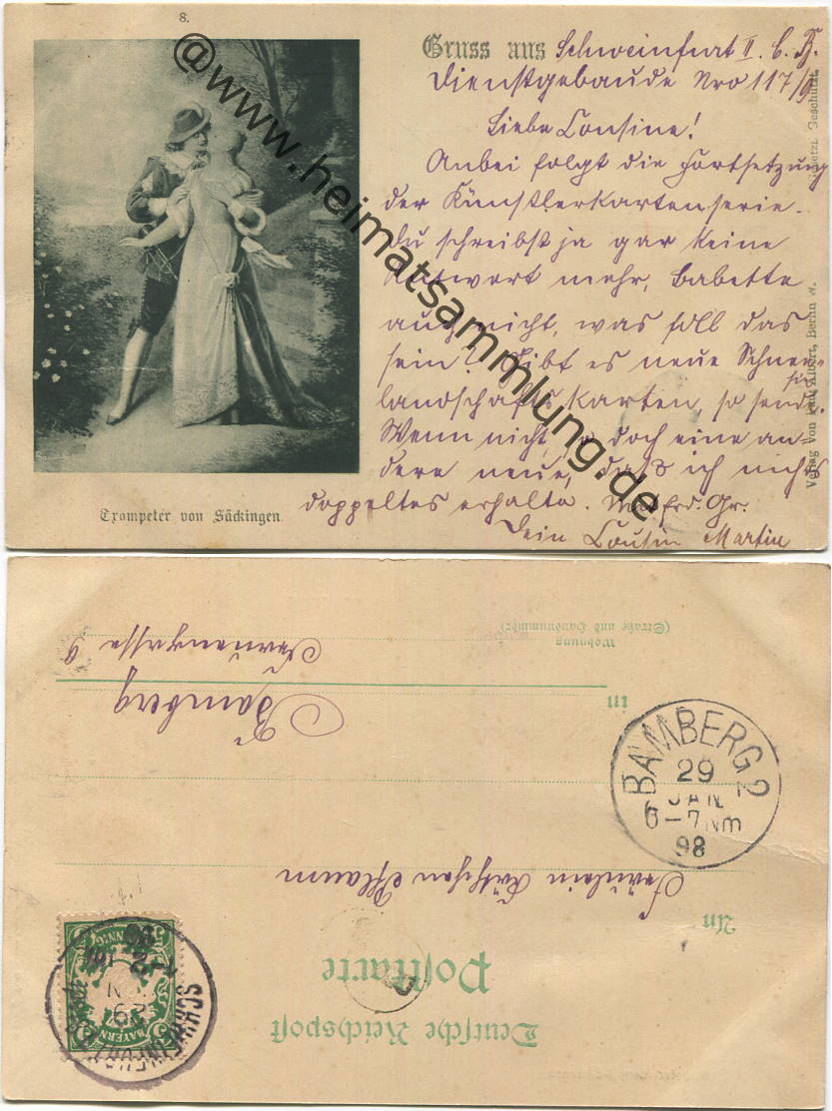 8.
Gruss aus Schweinfurt II. b. B.
Dienstgebäude Nro 117/9
Liebe Cousine!
Anbei folgt die Fortsetzung
der Künstlerkartenserie.
Du schreibst ja gar keine
Antwort mehr, Babette
auch nicht, was soll das
sein? Gibt es neue Schnee-
landschaftskarten, so sende.
Wenn nicht, so doch eine an-
dere neue, daß ich nichts
doppeltes erhalte. Mit frd. Gr.
Dein Cousin Martin
Trompeter von Säckingen.
Gesetzl. Geschützt.
Verlag von Paul Albert, Berlin W.
@www.heimatsammlung.de
Deutsche Reichspost
Postkarte
An
Fräulein Käthchen Pflaum
in
Bamberg
Wohnung
(Straße und Hausnummer)
Frauengasse 9
BAMBERG 2
29
JAN
6-7 Nm
98
SCHWEINFURT
29
98
BAYERN